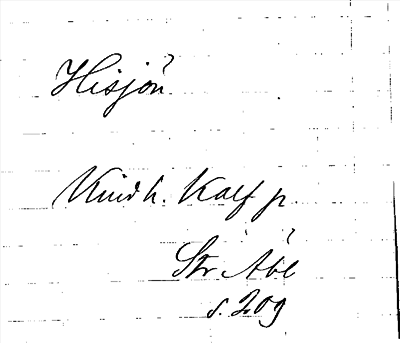 Hisjön
Kind h. Kalf p.
Str Åbl
s. 209